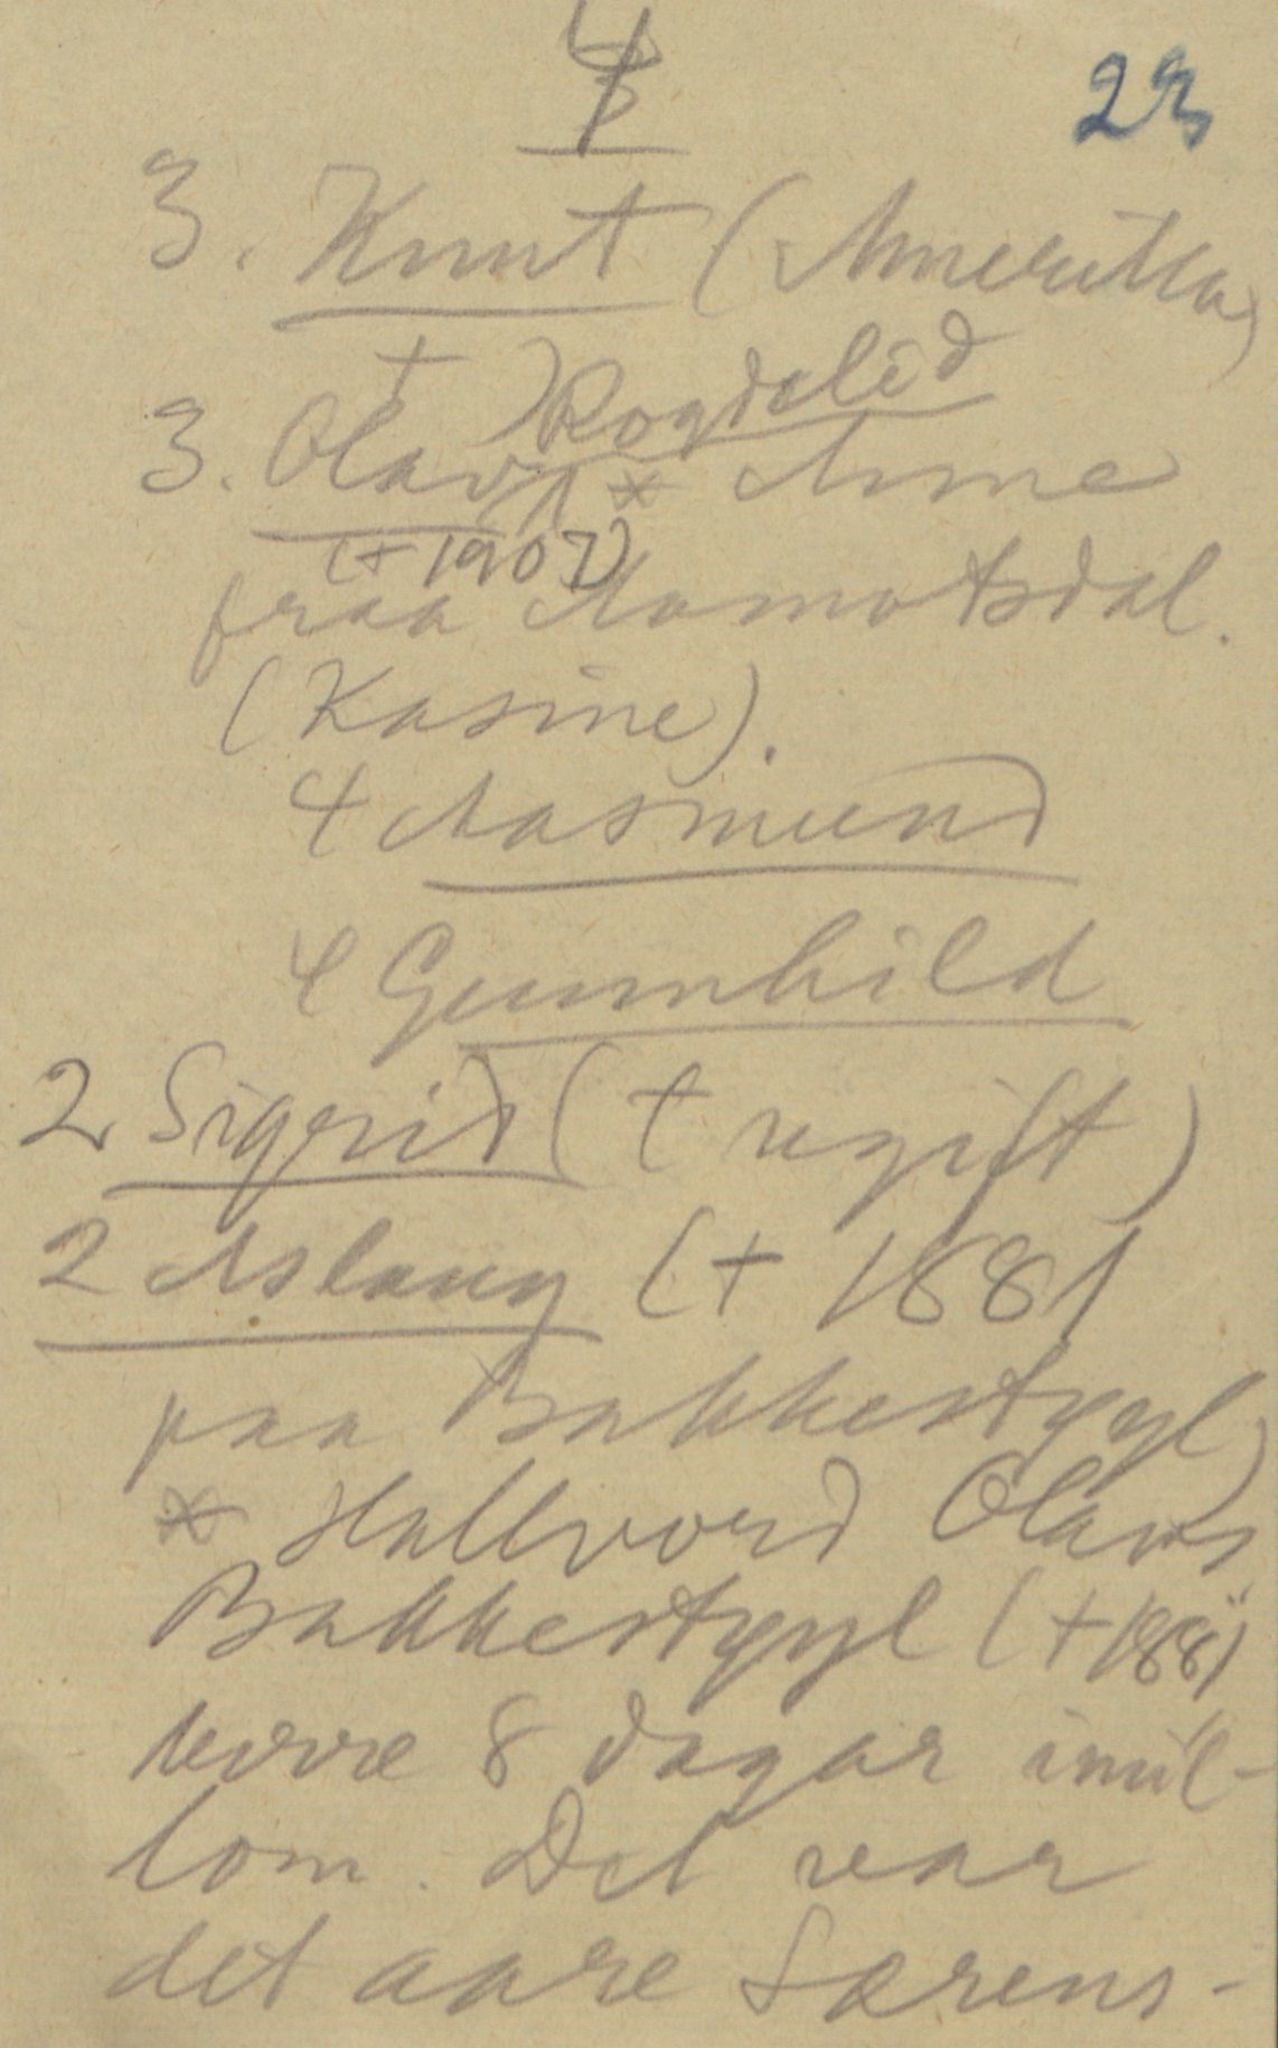 4
23
3. Knut (Amerika)
† Rogdelid
3. Olav * Anne
(+ 1907)
fraa Aamotsdal.
(Kasine).
4 Aasmund
4 Gunnhild
2 Sigrid († ugift)
2 Aslaug (+ 1881
paa Bakkestyyl)
* Hallvord Olavs
Bakkestyyl (+ 1881)
berre 8 dagar imil-
lom. Det var
det aare Sørens-